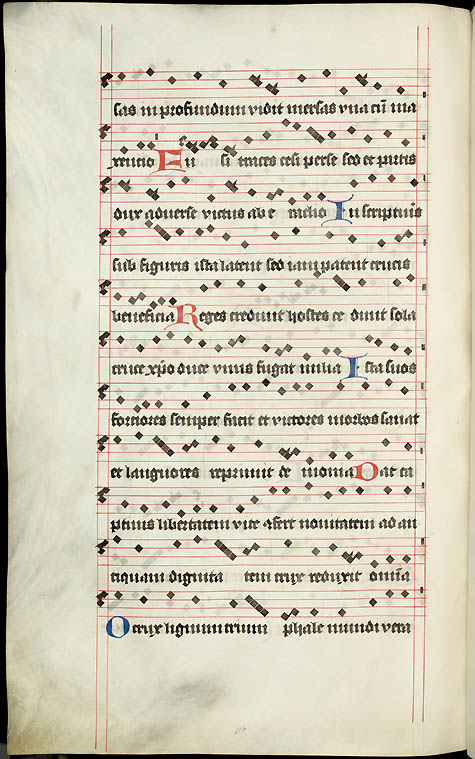 sas in profundum vidit mersas vna cū ma
xencio Fu si traces cesi perse sed et partis
dux aduerse victus ab e raclio In scripturis
sub figuris ista latent sed iam patent crucis
beneficia Reges credunt hostes ce dunt sola
cruce xpo duce vnus fugat milia Ista suos
fortiores semper facit et victores morbos sanat
et languores reprimit de monia Dat ca
ptiuis libertatem vite cōfert nouitatem ad an
tiquam dignita tem crux reduxit omīa
O crux lignum trium phale mundi vera